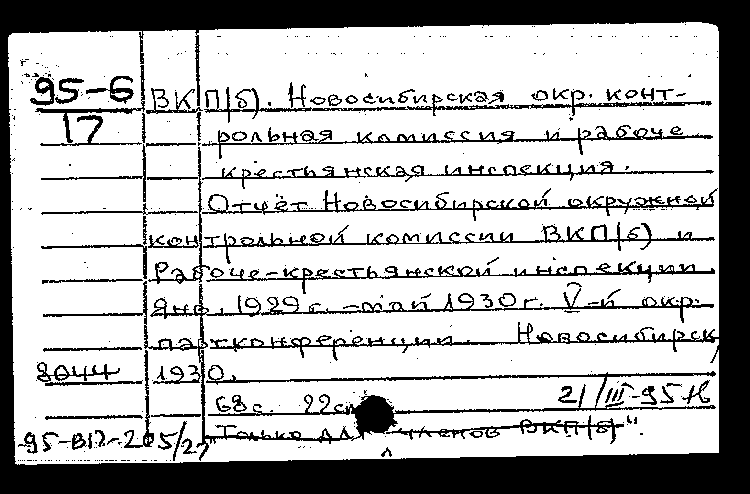 95-6 ВКП(б). Новосибирская окр. конт-
17 рольная комиссия и рабоче
крестьянская инспекция.
Отчёт Новосибирской окружной
контрольной комиссии ВКП(б) и
Рабоче-крестьянской инспекции
янв. 1929 г. - май 1930 г. V-й окр.
партконференции. Новосибирск,
8044 1930.
68 с. 22 см 21/III-95 Н
95-В12-205/27 "Только для членов ВКП(б)".